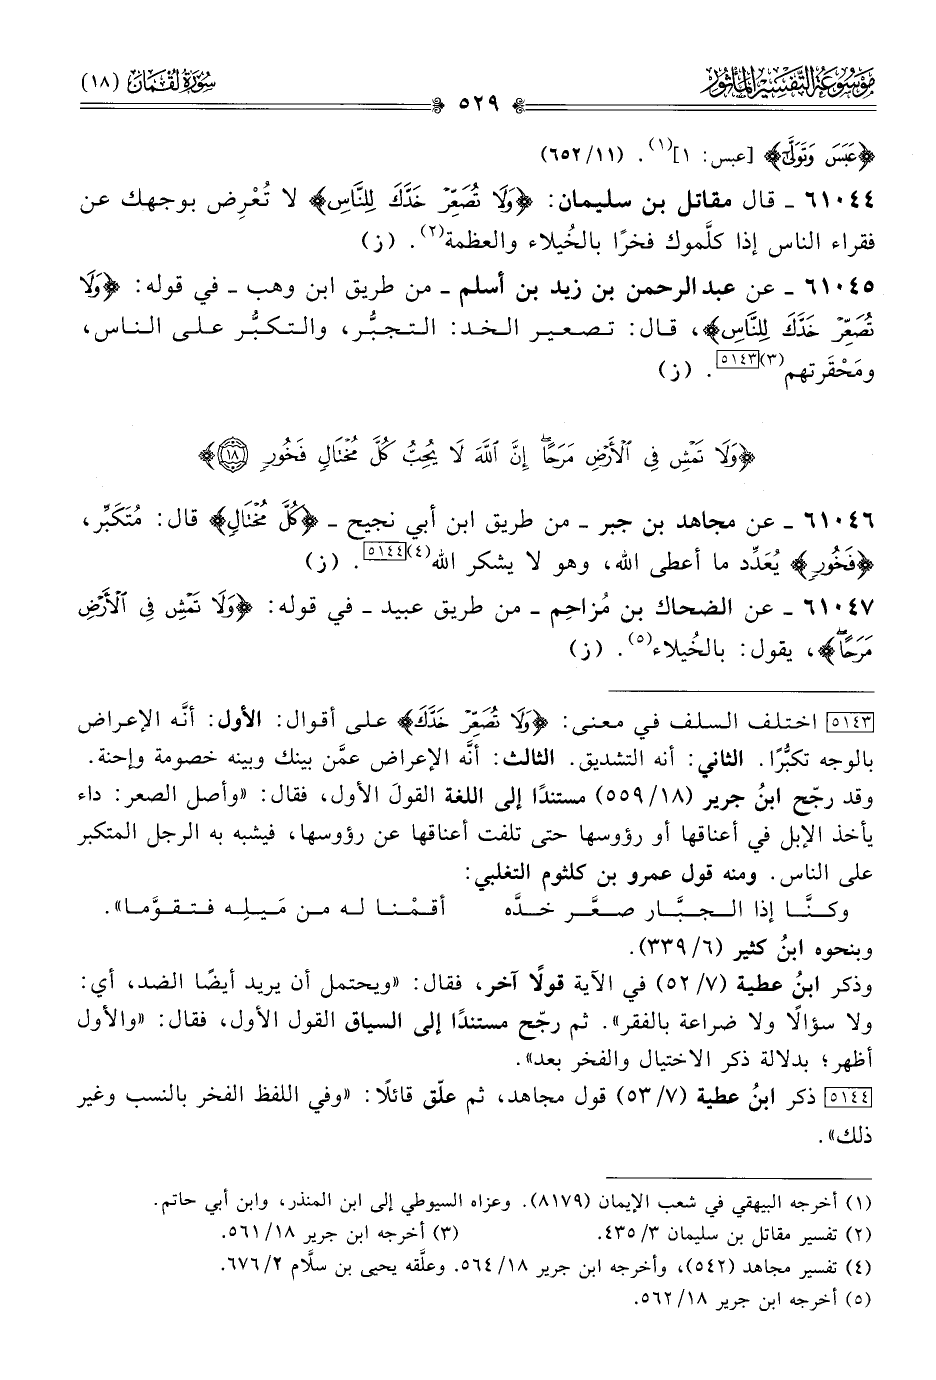 مَوْسُوعَةُ التَّفْسِيرِ المَأْثُورِ
سُورَةُ لُقْمَانَ (١٨)
٥٢٩
﴿عَبَسَ وَتَوَلَّىٰ﴾ [عبس: ١](١). (١١/ ٦٥٢)
٦١٠٤٤ ـ قال مقاتل بن سليمان: ﴿وَلَا تُصَعِّرْ خَدَّكَ لِلنَّاسِ﴾ لا تُعْرِض بوجهك عن
فقراء الناس إذا كلَّموك فخرًا بالخُيلاء والعظمة(٢). (ز)
٦١٠٤٥ ـ عن عبد الرحمن بن زيد بن أسلم ـ من طريق ابن وهب ـ في قوله: ﴿وَلَا
تُصَعِّرْ خَدَّكَ لِلنَّاسِ﴾، قال: تصعير الخد: التجبُّر، والتكبُّر على الناس،
ومَحْقَرتهم(٣)[٥١٤٣]. (ز)
﴿وَلَا تَمْشِ فِى ٱلْأَرْضِ مَرَحًاۖ إِنَّ ٱللَّهَ لَا يُحِبُّ كُلَّ مُخْتَالٍ فَخُورٍ ١٨﴾
٦١٠٤٦ ـ عن مجاهد بن جبر ـ من طريق ابن أبي نجيح ـ ﴿كُلَّ مُخْتَالٍ﴾ قال: مُتَكَبِّر،
﴿فَخُورٍ﴾ يُعَدِّد ما أعطى الله، وهو لا يشكر الله(٤)[٥١٤٤]. (ز)
٦١٠٤٧ ـ عن الضحاك بن مُزاحِم ـ من طريق عبيد ـ في قوله: ﴿وَلَا تَمْشِ فِى ٱلْأَرْضِ
مَرَحًاۖ﴾، يقول: بالخُيلاء(٥). (ز)
[٥١٤٣] اختلف السلف في معنى: ﴿وَلَا تُصَعِّرْ خَدَّكَ﴾ على أقوال: الأول: أنَّه الإعراض
بالوجه تكبُّرًا. الثاني: أنه التشديق. الثالث: أنَّه الإعراض عمَّن بينك وبينه خصومة وإحنة.
وقد رجّح ابنُ جرير (١٨/ ٥٥٩) مستندًا إلى اللغة القولَ الأول، فقال: «وأصل الصعر: داء
يأخذ الإبل في أعناقها أو رؤوسها حتى تلفت أعناقها عن رؤوسها، فيشبه به الرجل المتكبر
على الناس. ومنه قول عمرو بن كلثوم التغلبي:
وكنَّا إذا الجبَّار صعَّر خدَّه أقمْنا له من مَيلِه فتقوَّما».
وبنحوه ابنُ كثير (٦/ ٣٣٩).
وذكر ابنُ عطية (٧/ ٥٢) في الآية قولًا آخر، فقال: «ويحتمل أن يريد أيضًا الضد، أي:
ولا سؤالًا ولا ضراعة بالفقر». ثم رجّح مستندًا إلى السياق القول الأول، فقال: «والأول
أظهر؛ بدلالة ذكر الاختيال والفخر بعد».
[٥١٤٤] ذكر ابنُ عطية (٧/ ٥٣) قول مجاهد، ثم علّق قائلًا: «وفي اللفظ الفخر بالنسب وغير
ذلك».
(١) أخرجه البيهقي في شعب الإيمان (٨١٧٩). وعزاه السيوطي إلى ابن المنذر، وابن أبي حاتم.
(٢) تفسير مقاتل بن سليمان ٣/ ٤٣٥. (٣) أخرجه ابن جرير ١٨/ ٥٦١.
(٤) تفسير مجاهد (٥٤٢)، وأخرجه ابن جرير ١٨/ ٥٦٤. وعلَّقه يحيى بن سلَّام ٢/ ٦٧٦.
(٥) أخرجه ابن جرير ١٨/ ٥٦٢.